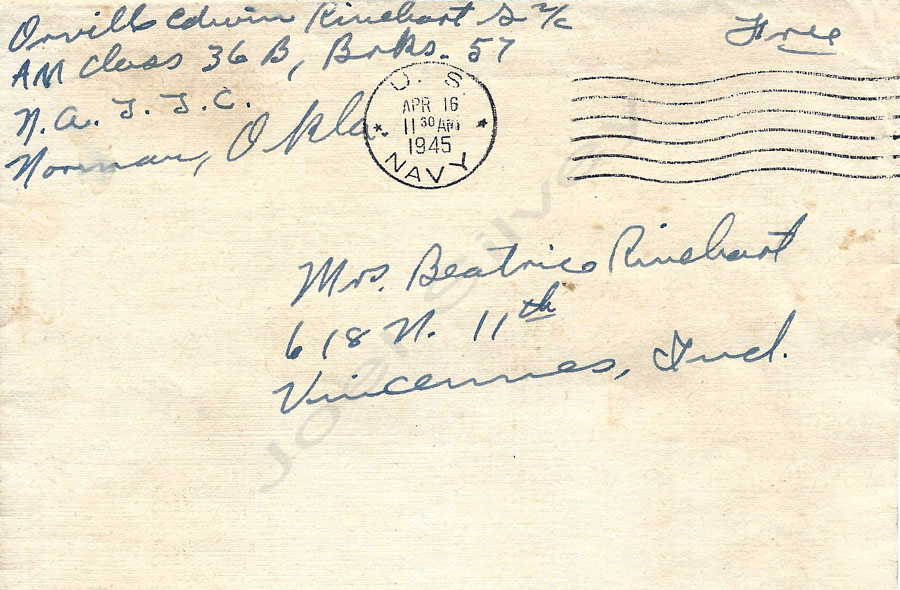 Orville Edwin Rinehart S 2/c
AM Class 36 B, Brks. 57
N.A.T.T.C.
Norman, Okla.
Free
U. S.
APR 16
11 30 AM
1945
NAVY
Mrs. Beatrice Rinehart
618 N. 11th
Vincennes, Ind.